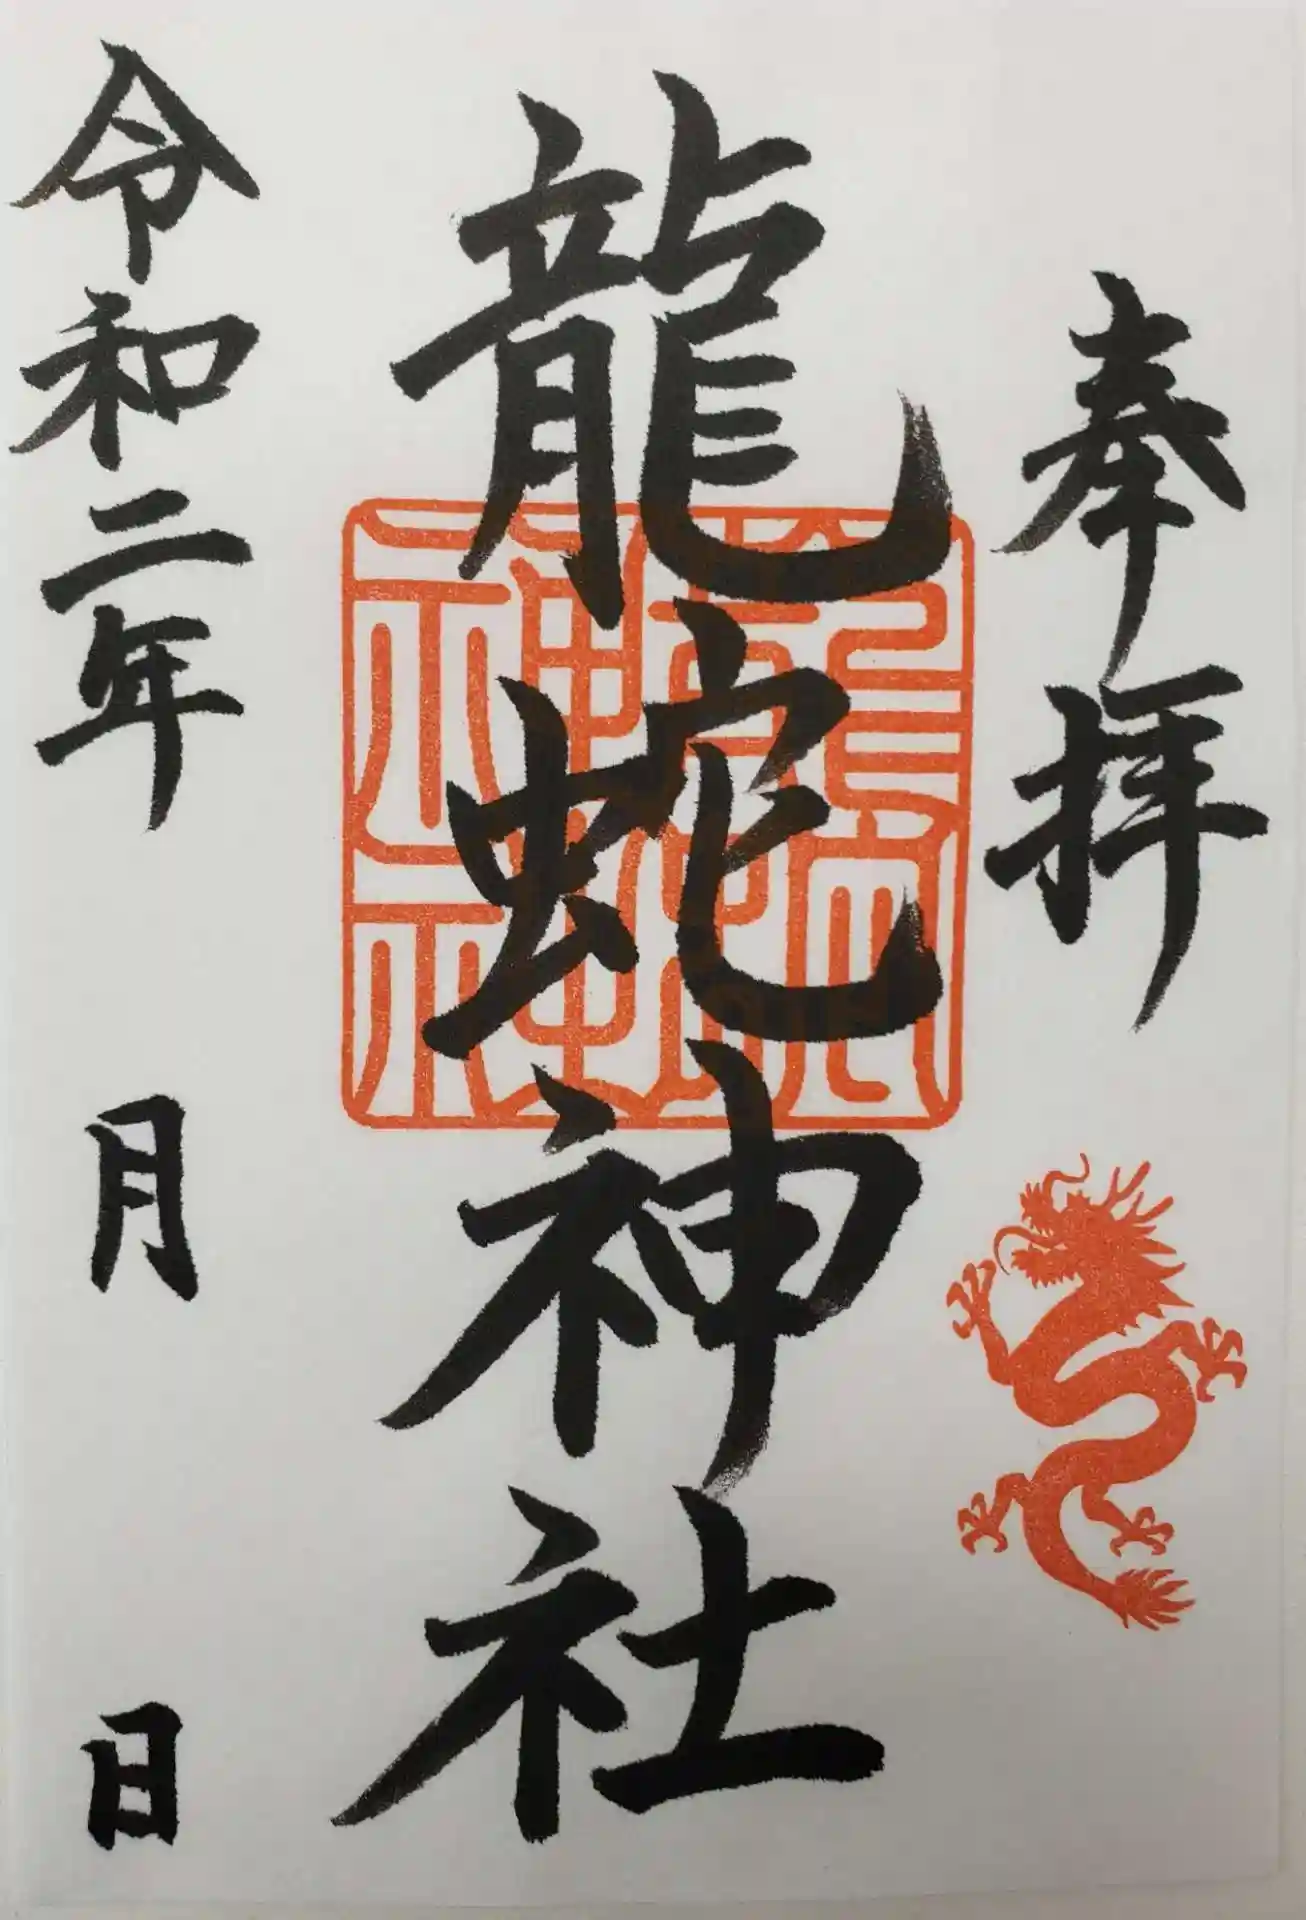 奉拝
龍蛇神社
龍蛇神社
令和二年 月 日